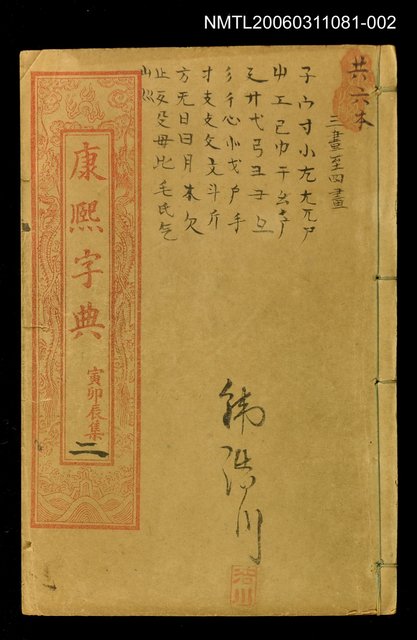 NMTL20060311081-002
共六本
三畫至四畫
子宀寸小尢尢兀尸
屮工己巾干幺广
廴廾弋弓彐彑
彡彳心小戈戶手
寸支攴攵文斗斤
方无日曰月木欠
止歹殳毋比毛氏气
康熙字典
寅卯辰集
二